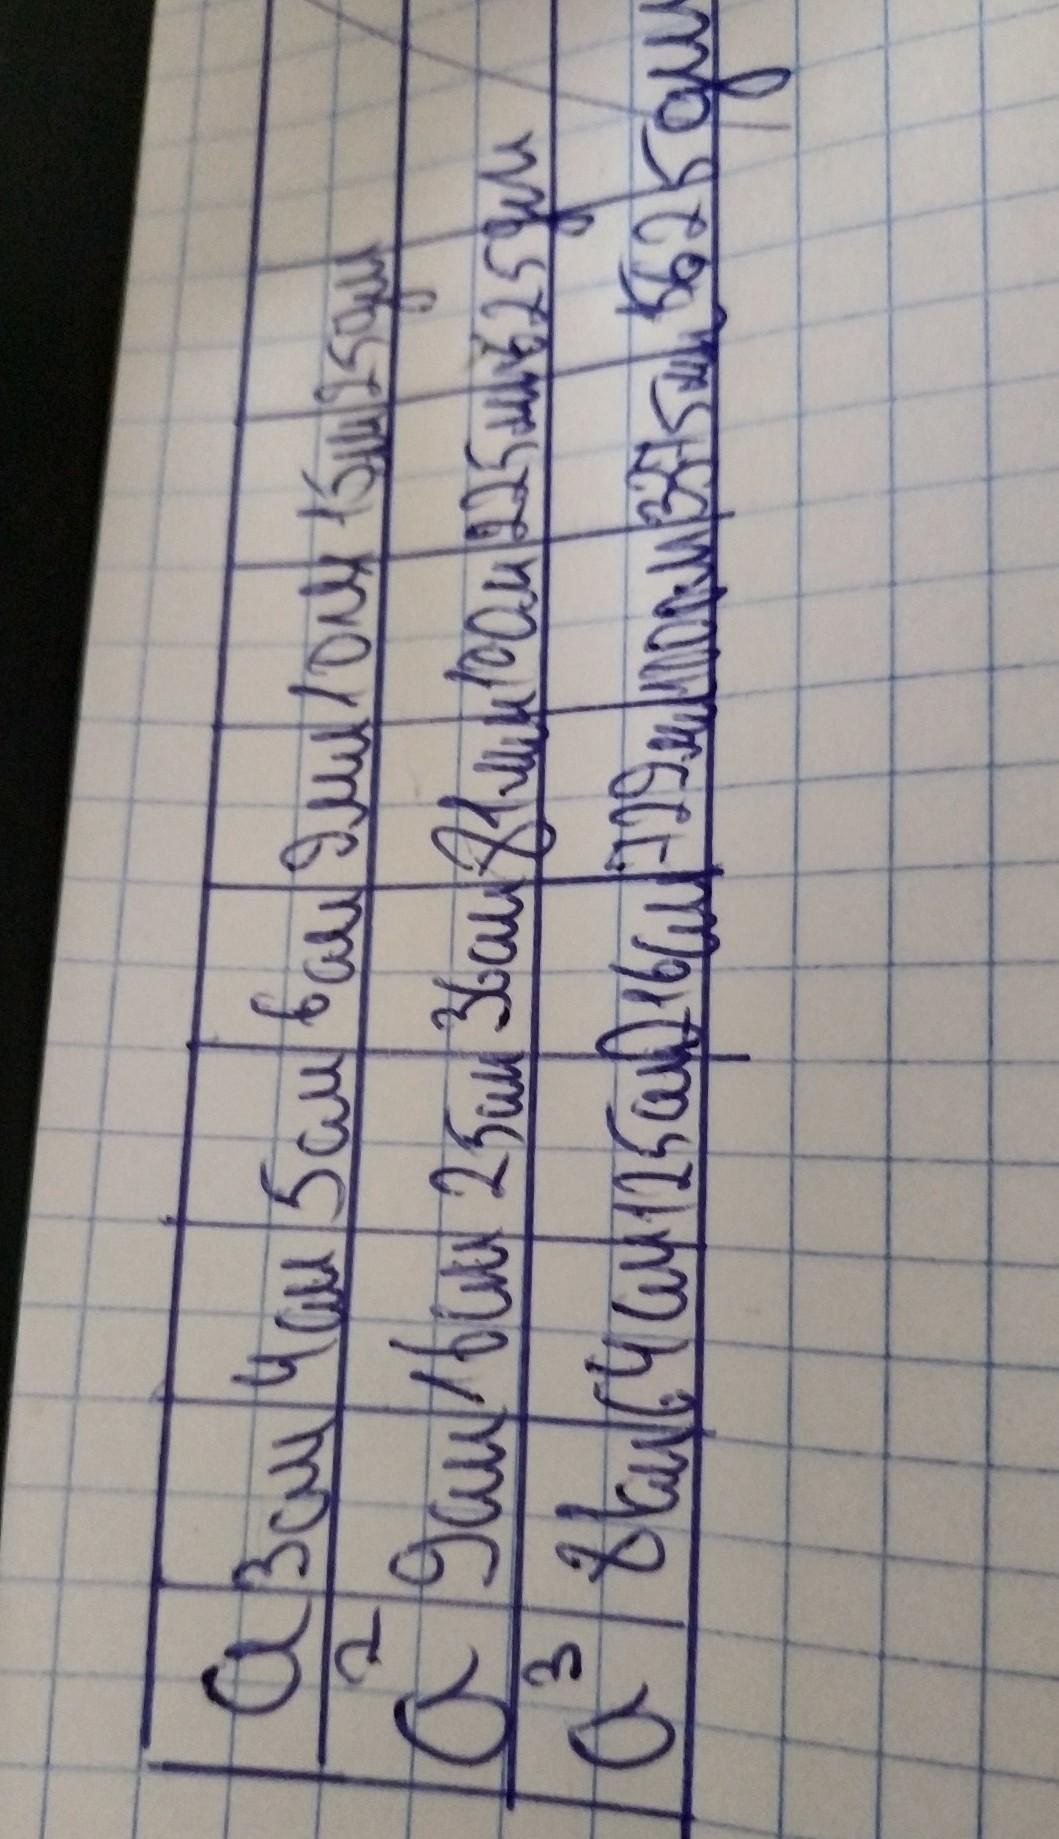 a 3см 4см 5см 6см 9мм 10м 15мм 25дм
a² 9см 16см 25см 36см 81мм 100м 225мм 625дм
a³ 64см 125см 216см 729мм 1000м 3375мм 15625дм